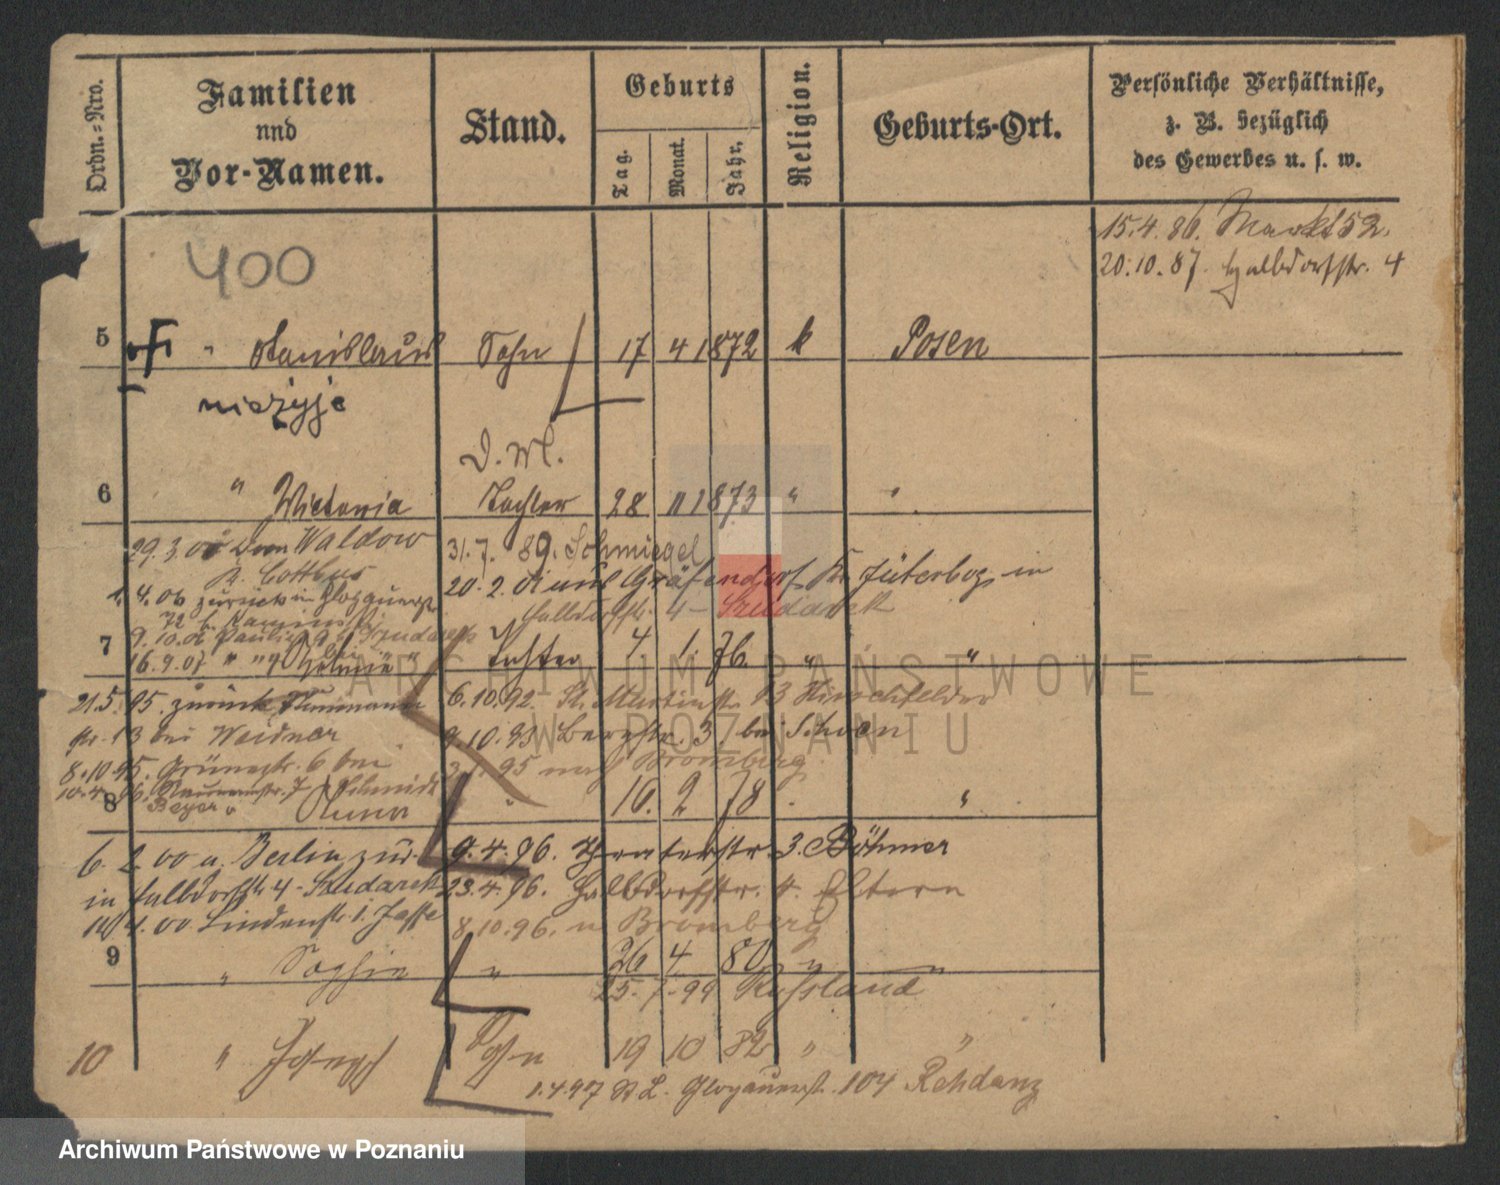 Ordn.=Nro.
Familien
und
Vor-Namen.
Stand.
Geburts
Tag.
Monat.
Jahr.
Religion.
Geburts-Ort.
Persönliche Verhältnisse,
z. B. bezüglich
des Gewerbes u. s. w.
15.4.86. Markt 52.
20.10.87. Halbdorfstr. 4
400
5 " Stanislaus Sohn 17 4 1872 k Posen
nieżyje
D. M.
6 " Wictoria Tochter 28 11 1873 " "
29.3.00 Waldow 31.7. 89. Schmiegel
K. Cottbus 20.2. auf Gräfendorf Kr. Jüterbog in
1.4.06 zurück in Glogauerstr Halbdorfstr. 4 - Szudarek
9.10.06
7 Tochter 4 1. 76. " "
16.9.07 " "
21.5.95. zurück 6.10.92. St. Martinstr. 13 Hirschfelder
13 bei Weidner 9.10.93 Bergstr. 3. bei Schoen
8.10.95. Grünestr. 6 bei 95 nach Bromberg
10.4.96. Naumannstr. 7 Schmidt
8 Beyer " Anna " 16. 2 78 . "
6.2.00 a. Berlin zur. 9.4.96. Theaterstr. 3. Böhmer
in Halbdorfstr 4 - Szudarek 23.4.96. Halbdorfstr. 4. Eltern
4.00 Lindenstr. 1. Jaffe 8.10.96. n Bromberg
9 " Sophie " 26 4 80 " "
25.7.99 Russland
10 " Joseph Sohn 19 10 82 " "
1.4.97 St L. Glogauerstr. 104 Rehdanz
ARCHIWUM PAŃSTWOWE
W POZNANIU
Archiwum Państwowe w Poznaniu